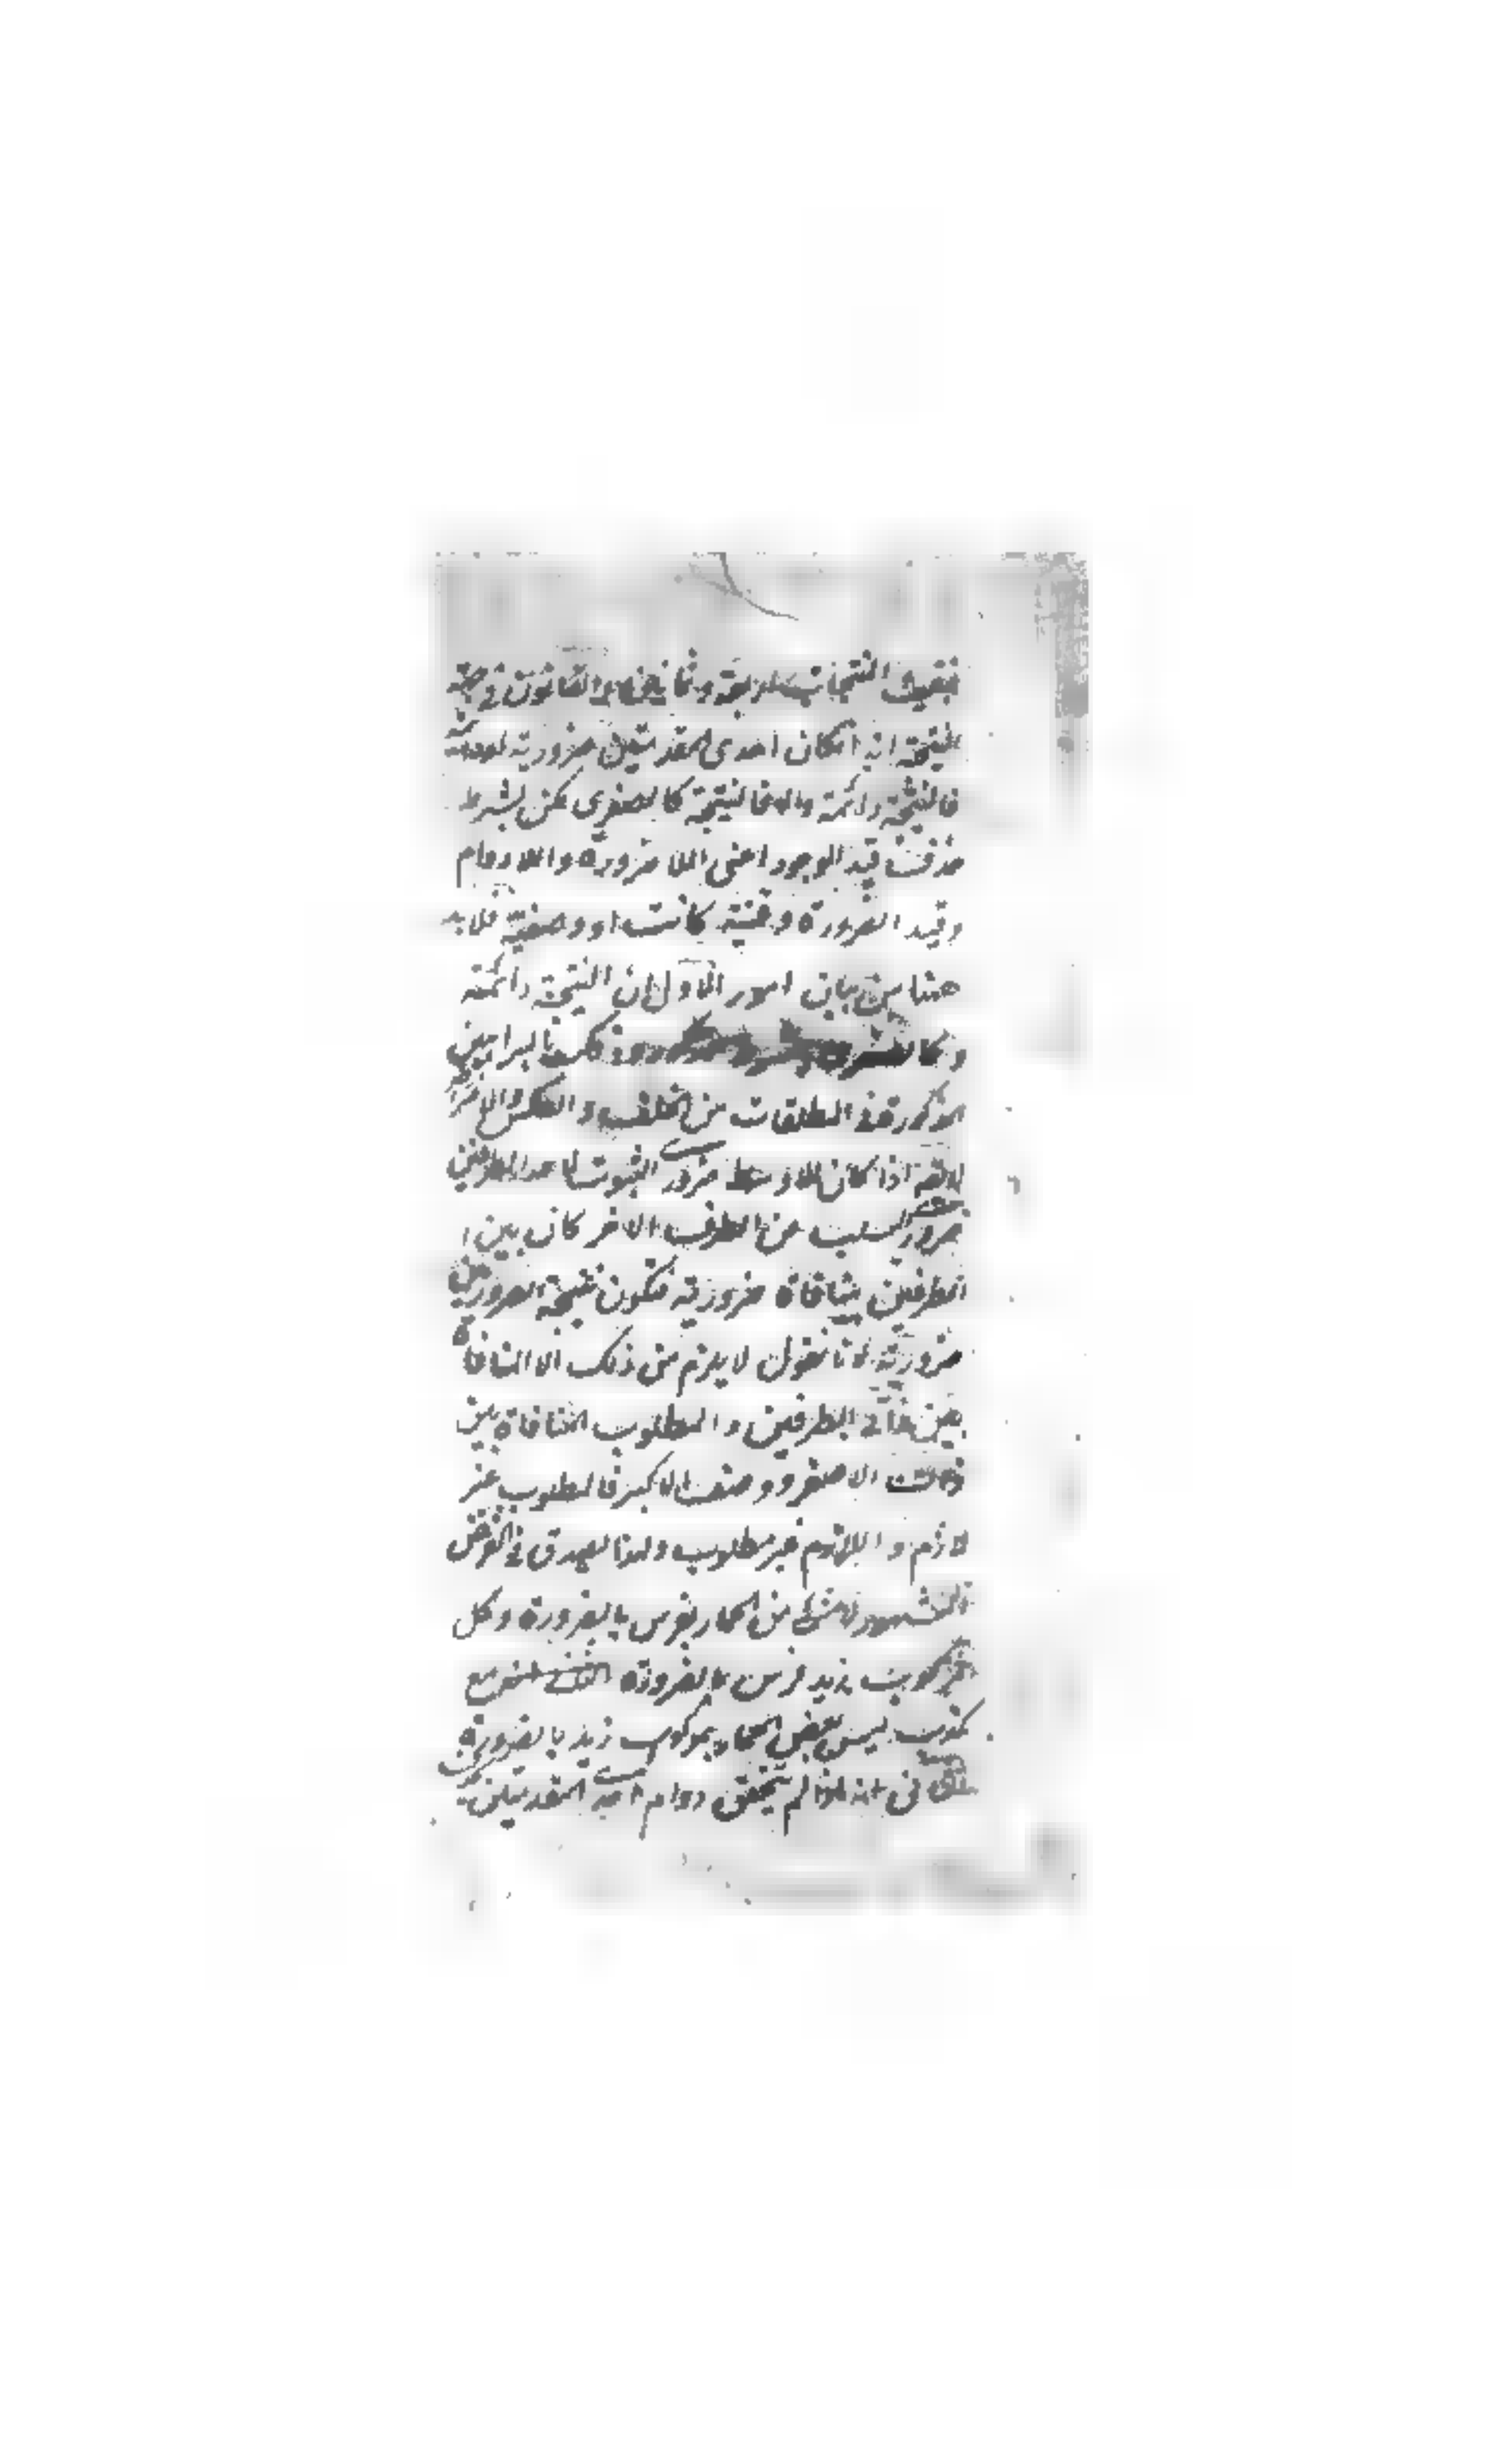 فبقيت المنتجات اربعة وثمانين والقانون في جهة
النتيجة انه ان كان احدى المقدمتين ضرورية او دائمة
فالنتيجة دائمة والا فالنتيجة كالصغرى لكن بشرط
حذف قيد الوجود اعنى اللا ضرورة واللا دوام
وقيد الضرورة وقتية كانت او وصفية فلا بد
هنا من بيان امور الاول ان النتيجة دائمة
وكالصغرى وذلك بالبراهين
المذكورة فى المطلقات من الخلف والعكس والافتراض
لا يقال اذا كان الاوسط ضرورى الثبوت لاحد الطرفين
ضرورى السلب عن الطرف الاخر كان بين
الطرفين منافاة ضرورية فتكون نتيجة الضروريتين
ضرورية لانا نقول لا يلزم من ذلك الا المنافاة
بين ذاتى الطرفين والمطلوب المنافاة بين
ذات الاصغر ووصف الاكبر فالمطلوب غير
لازم واللازم غير مطلوب ولهذا يصدق فى الفرض
المشهور لا شئ من الحمار بفرس بالضرورة وكل
مركوب زيد فرس بالضرورة مع
كذب ليس بعض الحمار بمركوب زيد بالضرورة
الثانى انه اذا لم يتحقق دوام احدى المقدمتين